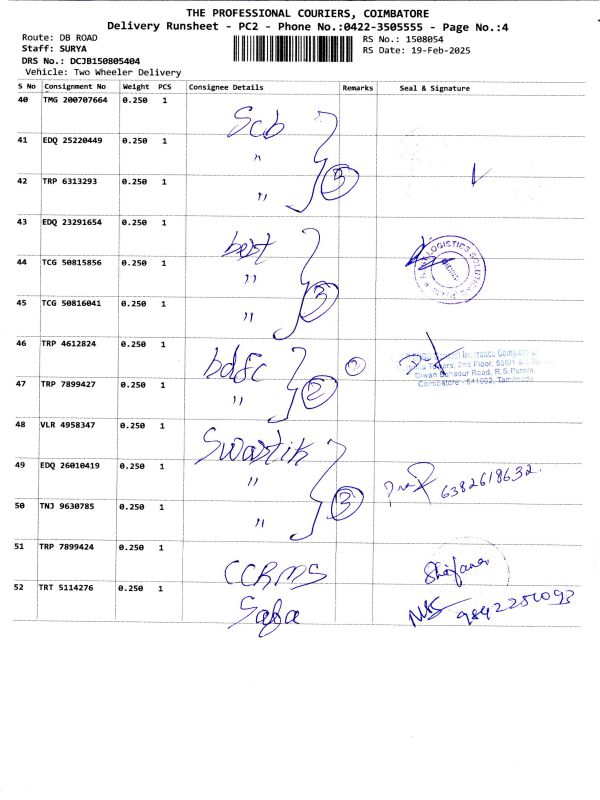 THE PROFESSIONAL COURIERS, COIMBATORE
Delivery Runsheet - PC2 - Phone No.:0422-3505555 - Page No.:4
Route: DB ROAD
RS No.: 1508054
Staff: SURYA
RS Date: 19-Feb-2025
DRS No.: DCJB150805404
Vehicle: Two Wheeler Delivery
S No Consignment No Weight PCS Consignee Details Remarks Seal & Signature
40 TMG 200707664 0.250 1 Scb
41 EDQ 25220449 0.250 1 "
42 TRP 6313293 0.250 1 " 3
43 EDQ 23291654 0.250 1 best
44 TCG 50815856 0.250 1 " LOGISTICS
45 TCG 50816041 0.250 1 " 3
46 TRP 4612824 0.250 1 bdfc 2
General Insurance Company
Towers, 2nd Floor,
Diwan Bahadur Road, R.S.Puram,
Coimbatore - 641002, Tamilnadu
47 TRP 7899427 0.250 1 " 2
48 VLR 4958347 0.250 1 Swastik
49 EDQ 26010419 0.250 1 " 6382618632
50 TNJ 9630785 0.250 1 " 3
51 TRP 7899424 0.250 1 CCRMS
52 TRT 5114276 0.250 1 Safa